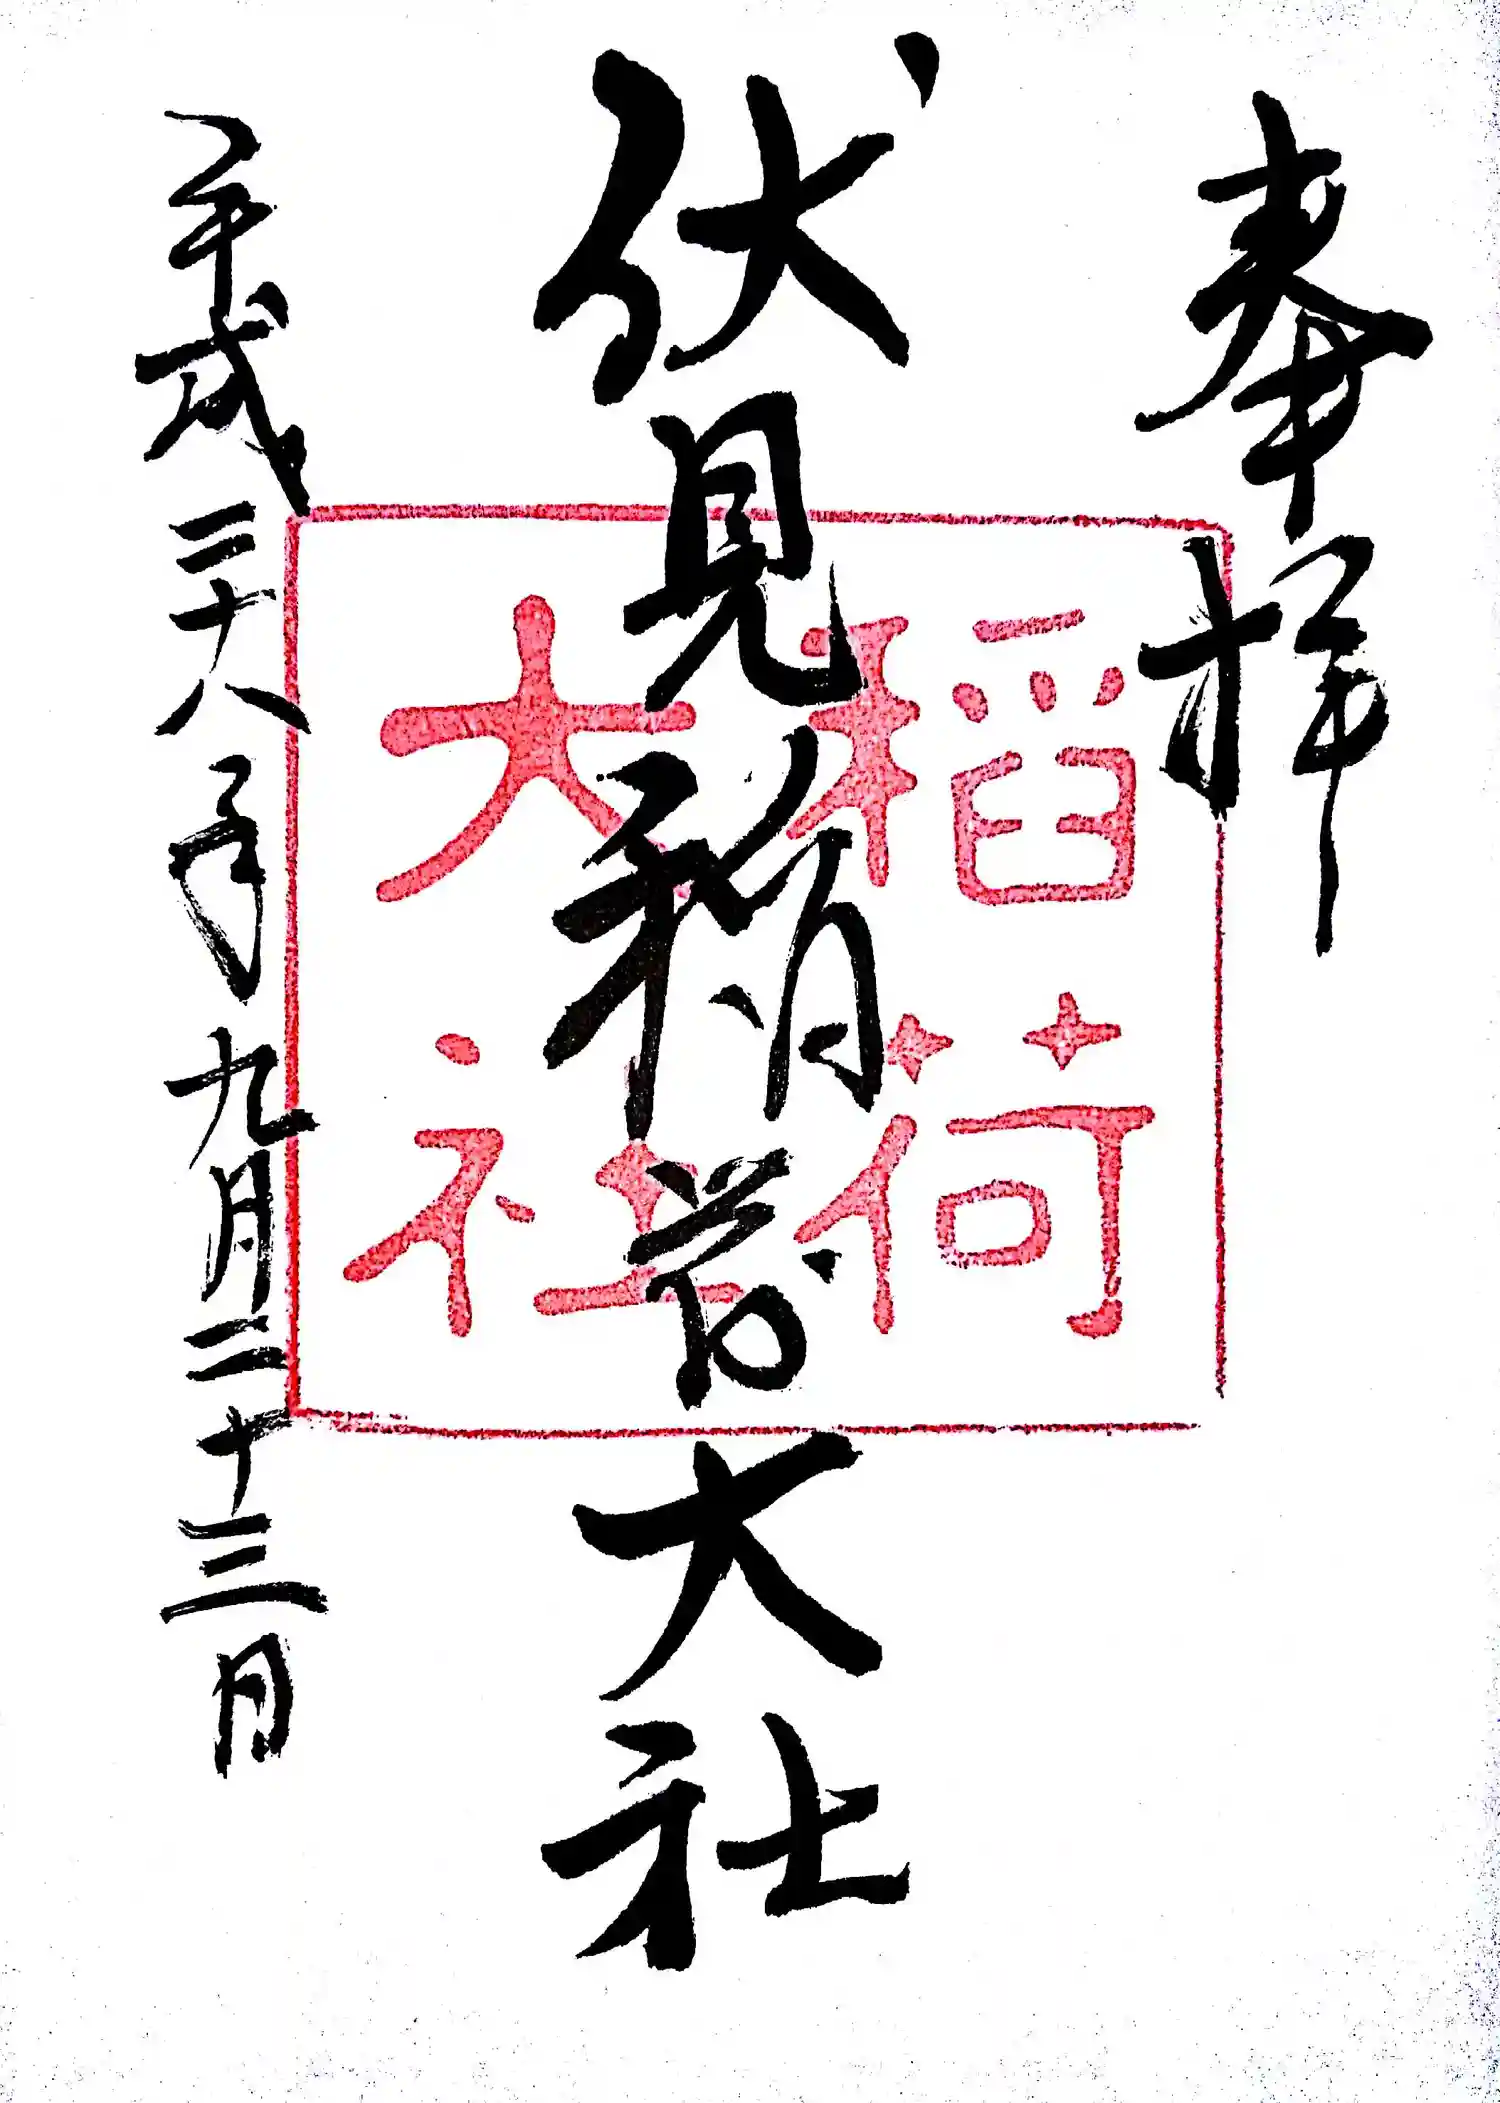 奉拝
伏見稲荷大社
稲荷
大社
平成二十八年九月二十三日